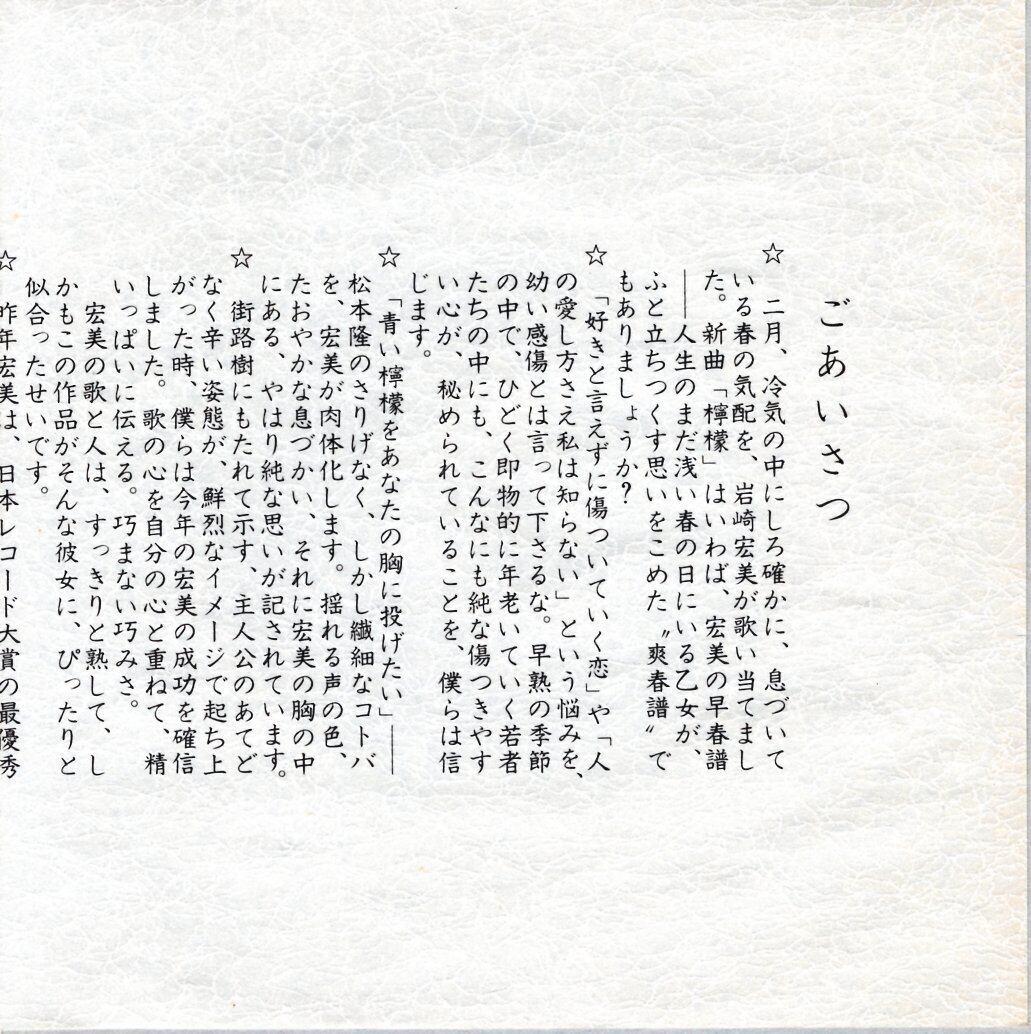 ごあいさつ
☆
二月、冷気の中にしろ確かに、息づいて
いる春の気配を、岩崎宏美が歌い当てまし
た。新曲「檸檬」はいわば、宏美の早春譜
――人生のまだ浅い春の日にいる乙女が、
ふと立ちつくす思いをこめた〝爽春譜〟で
もありましょうか?
☆
「好きと言えずに傷ついていく恋」や「人
の愛し方さえ私は知らない」という悩みを、
幼い感傷とは言って下さるな。早熟の季節
の中で、ひどく即物的に年老いていく若者
たちの中にも、こんなにも純な傷つきやす
い心が、秘められていることを、僕らは信
じます。
☆
「青い檸檬をあなたの胸に投げたい」――
松本隆のさりげなく、しかし繊細なコトバ
を、宏美が肉体化します。揺れる声の色、
たおやかな息づかい、それに宏美の胸の中
にある、やはり純な思いが記されています。
☆
街路樹にもたれて示す、主人公のあてど
なく辛い姿態が、鮮烈なイメージで起ち上
がった時、僕らは今年の宏美の成功を確信
しました。歌の心を自分の心と重ねて、精
いっぱいに伝える。巧まない巧みさ。
宏美の歌と人は、すっきりと熟して、し
かもこの作品がそんな彼女に、ぴったりと
似合ったせいです。
☆
昨年宏美は、日本レコード大賞の最優秀